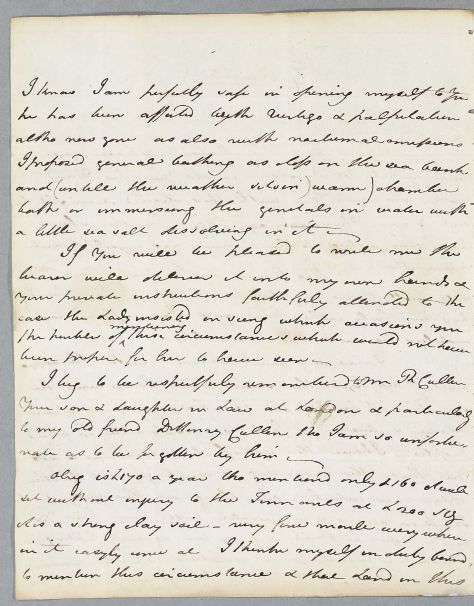 I know I am perfectly safe in opening myself to You
he has been affected with Vertigo & palpitation
altho now gone as also with nocturnal emissions
I proposed general bathing as close on the sea bank
and (untill the weather sets in) warm) chamber
bath or immersing the genitals in water with
a little sea salt dissolving in it –
If You will be pleased to write me the
bearer will deliver it into my own hands &
Your private instructions faithfully attended to the
case the Lady insisted on seing which occasions you
the trouble of mentioning these circumstances which would not have
been proper for her to have seen –
I beg to be respectfully remembered to Mr Rt Cullen
Your son & daughter in Law at London & particularly
to my old friend Dr Henry Cullen tho I am so unfortu-
nate as to be forgotten by him –
is £170 a year tho mentiond only £160 &
set without injury to the Tennants at £200
is a strong clay soil – very fine marle every where
in it easyly come at I think myself in duty bound
to mention this circumstance & that Land in this